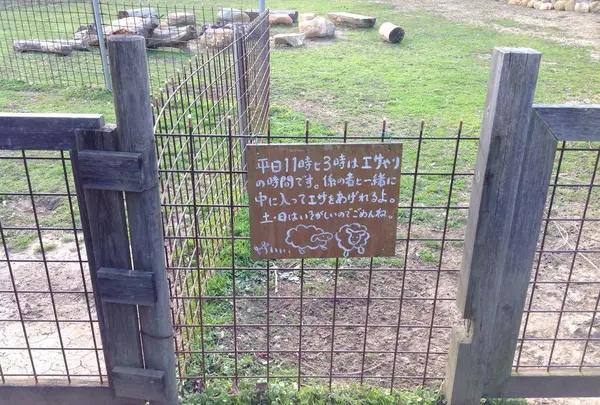 平日11時と3時はエサやり
の時間です。係の者と一緒に
中に入ってエサをあげれるよ。
土・日はいそがしいのでごめんね。